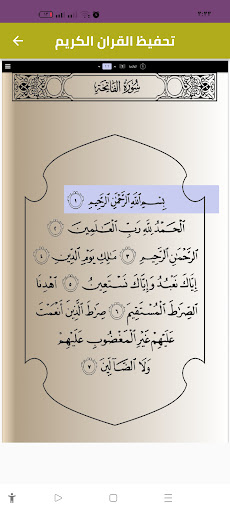 ٢:٣٣
تحفيظ القران الكريم
سُورَةُ الفَاتِحَةِ
بِسْمِ اللَّهِ الرَّحْمَٰنِ الرَّحِيمِ ١
الْحَمْدُ لِلَّهِ رَبِّ الْعَالَمِينَ ٢
الرَّحْمَٰنِ الرَّحِيمِ ٣ مَالِكِ يَوْمِ الدِّينِ ٤
إِيَّاكَ نَعْبُدُ وَإِيَّاكَ نَسْتَعِينُ ٥ اهْدِنَا
الصِّرَاطَ الْمُسْتَقِيمَ ٦ صِرَاطَ الَّذِينَ أَنْعَمْتَ
عَلَيْهِمْ غَيْرِ الْمَغْضُوبِ عَلَيْهِمْ
وَلَا الضَّالِّينَ ٧